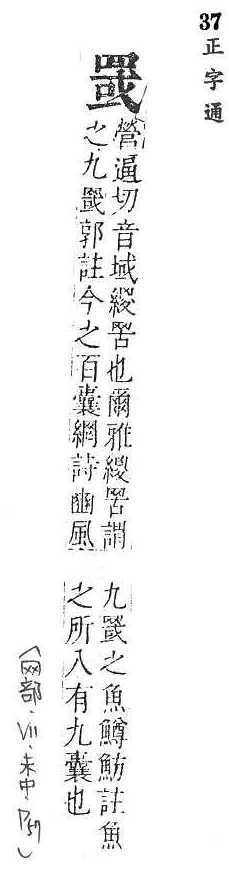 37 正字通
罭
營逼切音域緵罟也爾雅緵罟謂
之九罭郭註今之百囊網詩豳風
九罭之魚鱒魴註魚
之所入有九囊也
(网部·VII·未中·